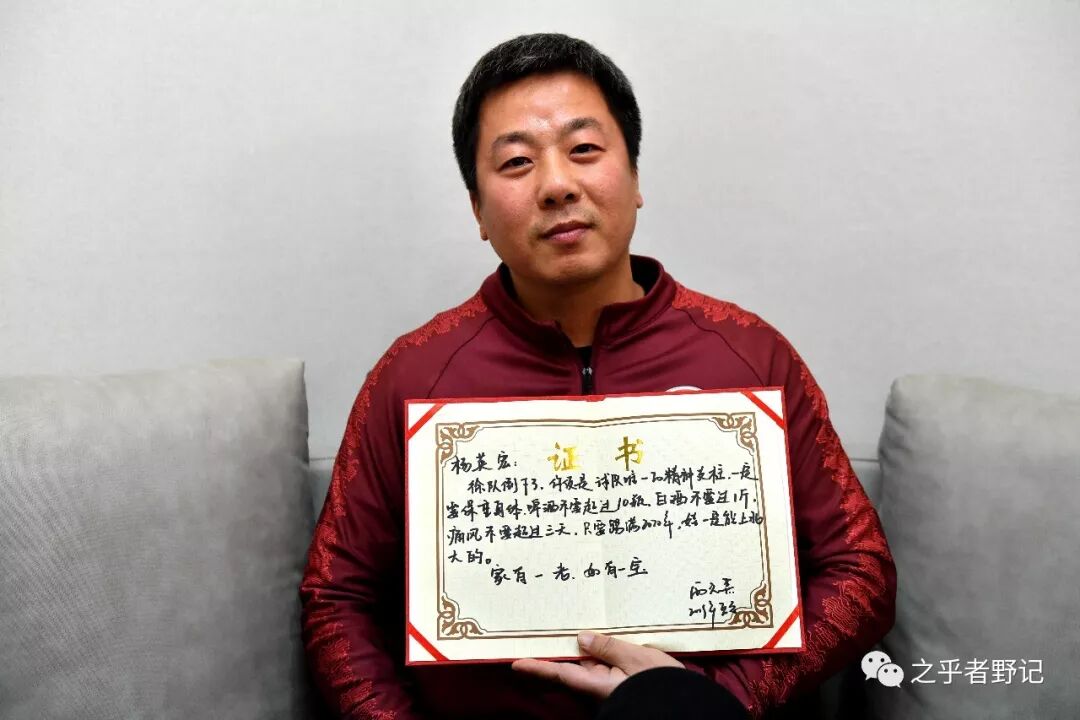 证书
杨英宏:
徐队倒下了,你便是球队唯一的精神支柱,一定
要保重身体,啤酒不要超过10瓶,白酒不要过1斤,
痛风不要超过三天,只要踢满2020年,妹一定能上北
大的。
家有一老,如有一宝
2019年
之乎者野记